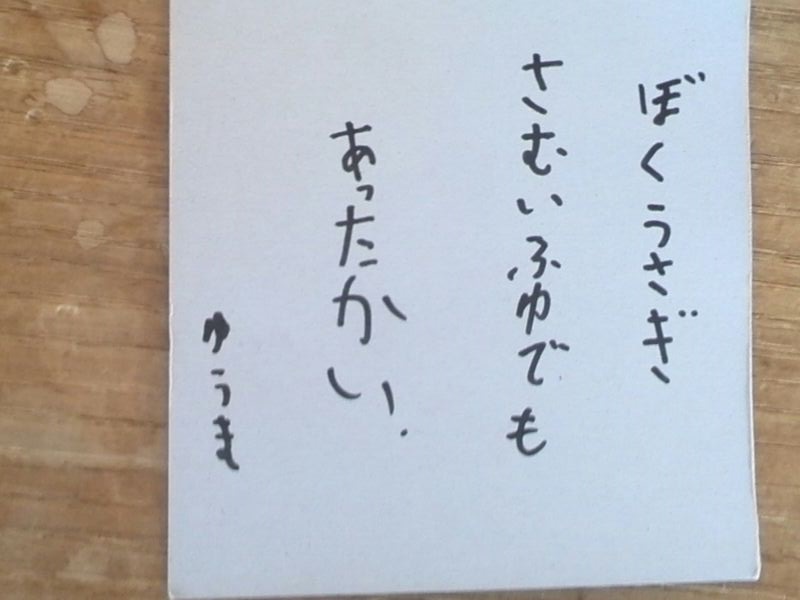 ぼくうさぎ
さむいふゆでも
あったかい!
ゆうま